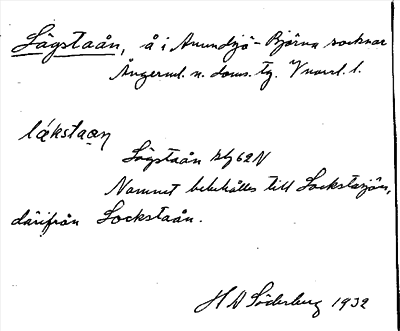 Lögstaån, å i Anundsjö-Björna socknar
Ångerml. n. doms. tg. Vnorrl. l.
lǻkstaan
Lögstaån kbg 62 N
Namnet behålles till Lockstasjön,
därifrån Lockstaån.
H A Söderberg 1932